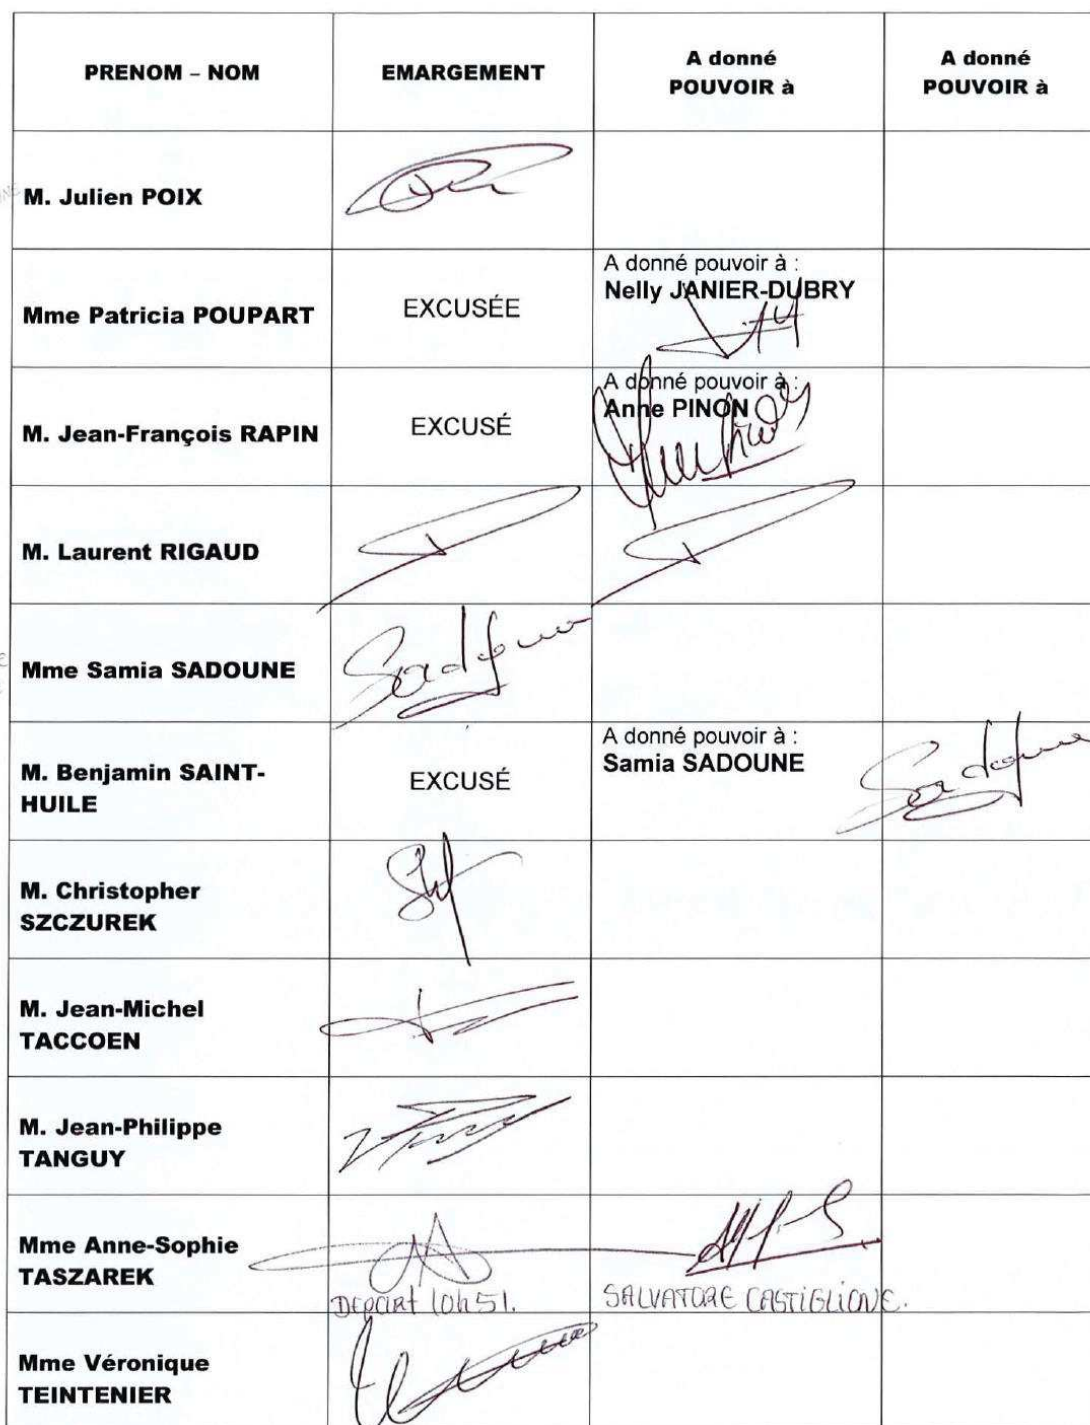 PRENOM – NOM
EMARGEMENT
A donné
POUVOIR à
A donné
POUVOIR à
M. Julien POIX
Mme Patricia POUPART
EXCUSÉE
A donné pouvoir à :
Nelly JANIER-DUBRY
M. Jean-François RAPIN
EXCUSÉ
A donné pouvoir à :
Anne PINON
M. Laurent RIGAUD
Mme Samia SADOUNE
Sadoune
M. Benjamin SAINT-
HUILE
EXCUSÉ
A donné pouvoir à :
Samia SADOUNE
Sadoune
M. Christopher
SZCZUREK
M. Jean-Michel
TACCOEN
M. Jean-Philippe
TANGUY
Mme Anne-Sophie
TASZAREK
DEPART 10h51.
SALVATORE CASTIGLIONE.
Mme Véronique
TEINTENIER